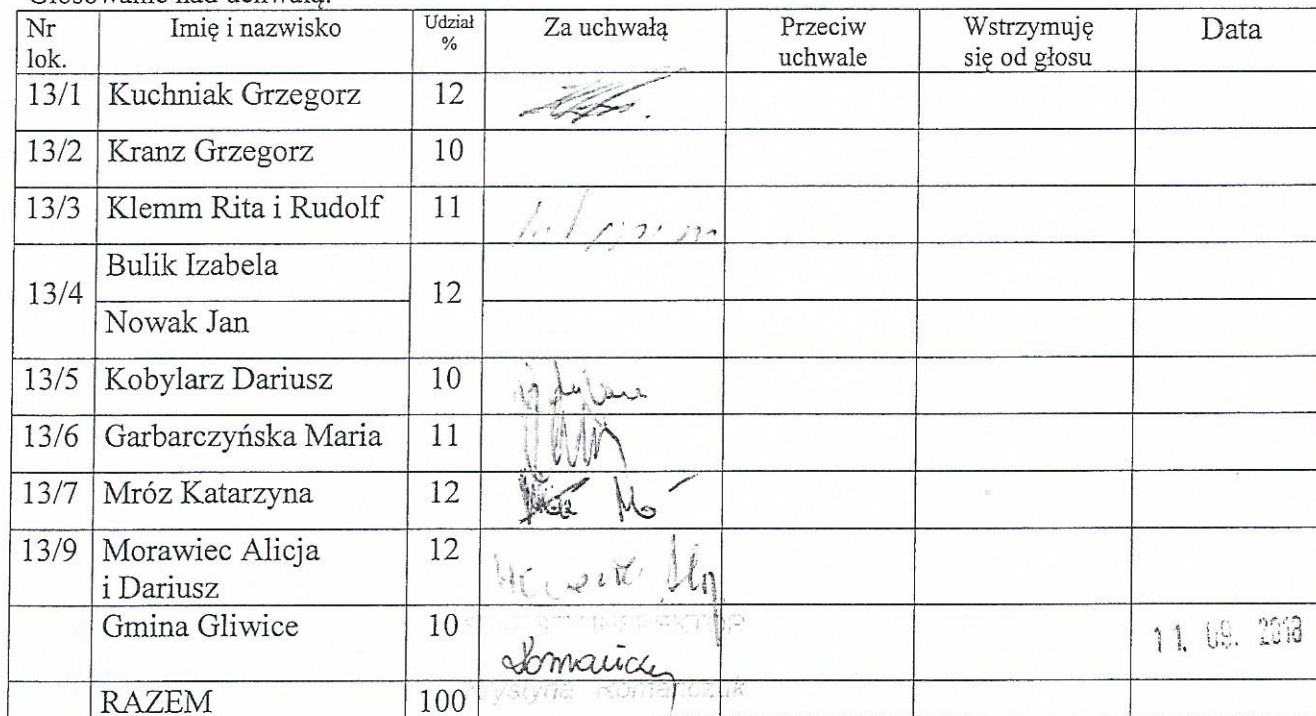 Głosowanie nad uchwałą:
Nr lok. Imię i nazwisko Udział % Za uchwałą Przeciw uchwale Wstrzymuję się od głosu Data
13/1 Kuchniak Grzegorz 12
13/2 Kranz Grzegorz 10
13/3 Klemm Rita i Rudolf 11
13/4 Bulik Izabela 12
Nowak Jan
13/5 Kobylarz Dariusz 10
13/6 Garbarczyńska Maria 11
13/7 Mróz Katarzyna 12
13/9 Morawiec Alicja 12
i Dariusz
Gmina Gliwice 10 INSPEKTOR 11. 09. 2018
Krystyna Romańczuk
RAZEM 100